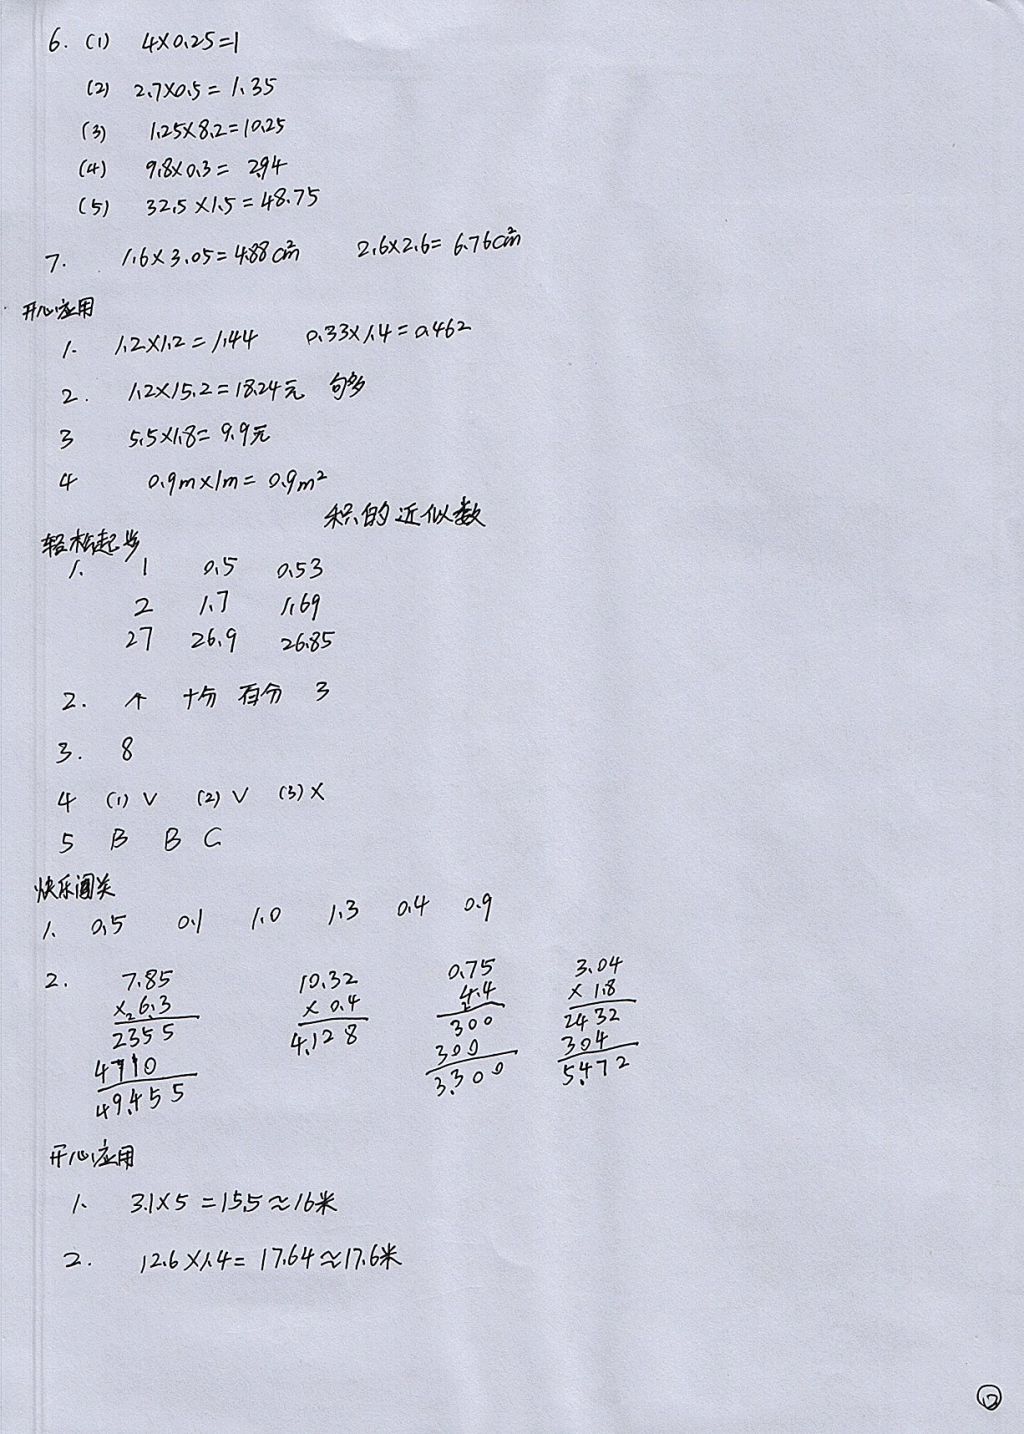 6. (1) 4×0.25=1
(2) 2.7×0.5=1.35
(3) 1.25×8.2=10.25
(4) 9.8×0.3=2.94
(5) 32.5×1.5=48.75
7. 1.6×3.05=4.88cm² 2.6×2.6=6.76cm²
开心应用
1. 1.2×1.2=1.44 0.33×1.4=0.462
2. 1.2×15.2=18.24元 句多
3 5.5×1.8=9.9元
4 0.9m×1m=0.9m²
积的近似数
轻松起步
1. 1 0.5 0.53
2 1.7 1.69
27 26.9 26.85
2. 个 十分 百分 3
3. 8
4 (1)√ (2)√ (3)×
5 B B C
快乐闯关
1. 0.5 0.1 1.0 1.3 0.4 0.9
2. 7.85 10.32 0.75 3.04
×26.3 ×0.4 4.4 ×1.8
2355 4.128 300 2432
4710 300 304
49.455 3.300 5.472
开心应用
1. 3.1×5=15.5≈16米
2. 12.6×1.4=17.64≈17.6米
12